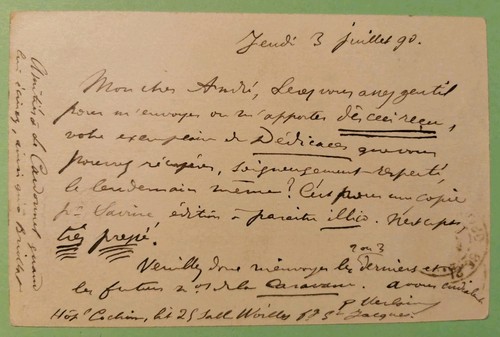 Jeudi 3 juillet 90.
Mon cher André, Serez vous assez gentil
pour m'envoyer ou m'apporter dès ceci reçu,
votre exemplaire de Dédicaces, que vous
pourrez récupérer, soigneusement respecté,
le lendemain même? C'est pour une copie
pr Savine, édition à paraître illico. N'est-ce pas
très pressé.
Veuillez donc m'envoyer les 2 ou 3 derniers et
les futurs nos de la Caravane. à vous cordialement
P. Verlaine
Hôpl Cochin, lit 25 Salle Woillez fg St Jacques.
Amitiés à Le Cardonnel quand
lui écrirez, ainsi qu'à